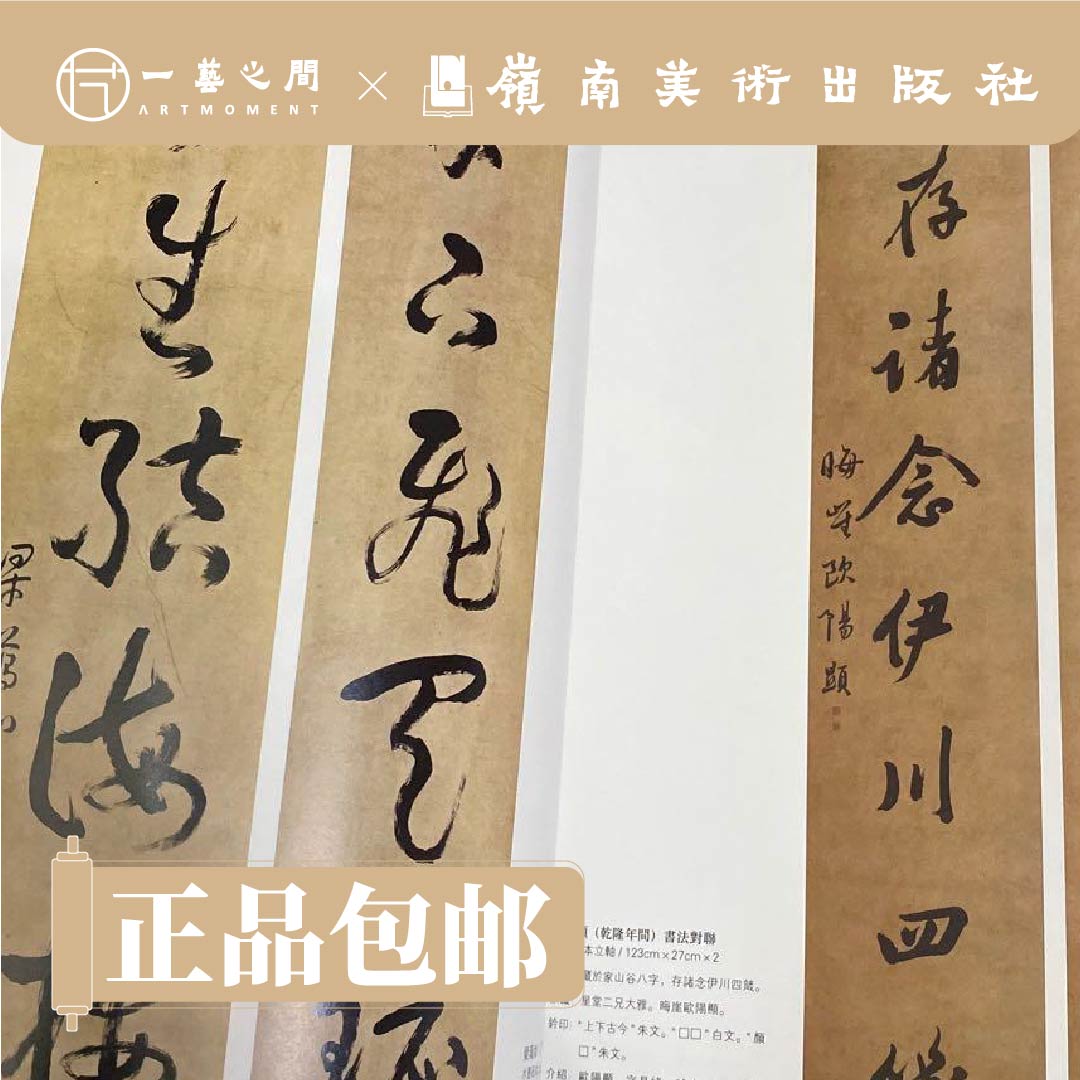 一藝之間
ARTMOMENT
×
嶺南美術出版社
存诸念伊川四
晦崖歐陽顯
生
海
飛
正品包邮
（乾隆年間）書法對聯
本立軸 / 123cm×27cm×2
於家山谷八字，存諸念伊川四箴。
星堂二兄大雅。晦崖歐陽顯。
鈐印："上下古今"朱文。"□□"白文。"顏
□"朱文。
介紹：歐陽顯，